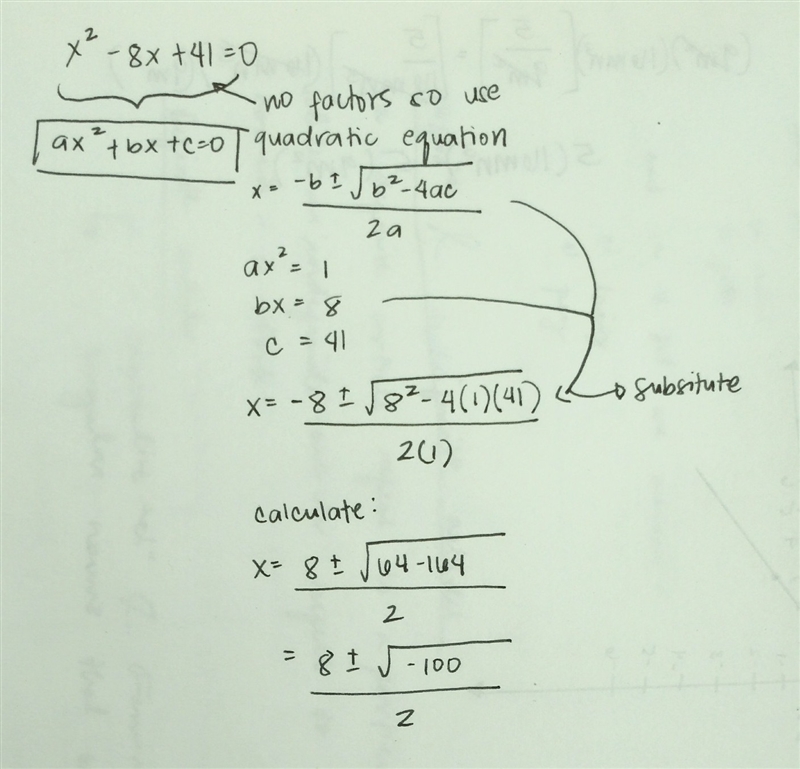 x² - 8x + 41 = 0
no factors so use
ax² + bx + c = 0 quadratic equation
x = -b ± √b² - 4ac / 2a
ax² = 1
bx = 8
c = 41
x = -8 ± √8² - 4(1)(41) / 2(1) subsitute
calculate:
x = 8 ± √64 - 164 / 2
= 8 ± √-100 / 2